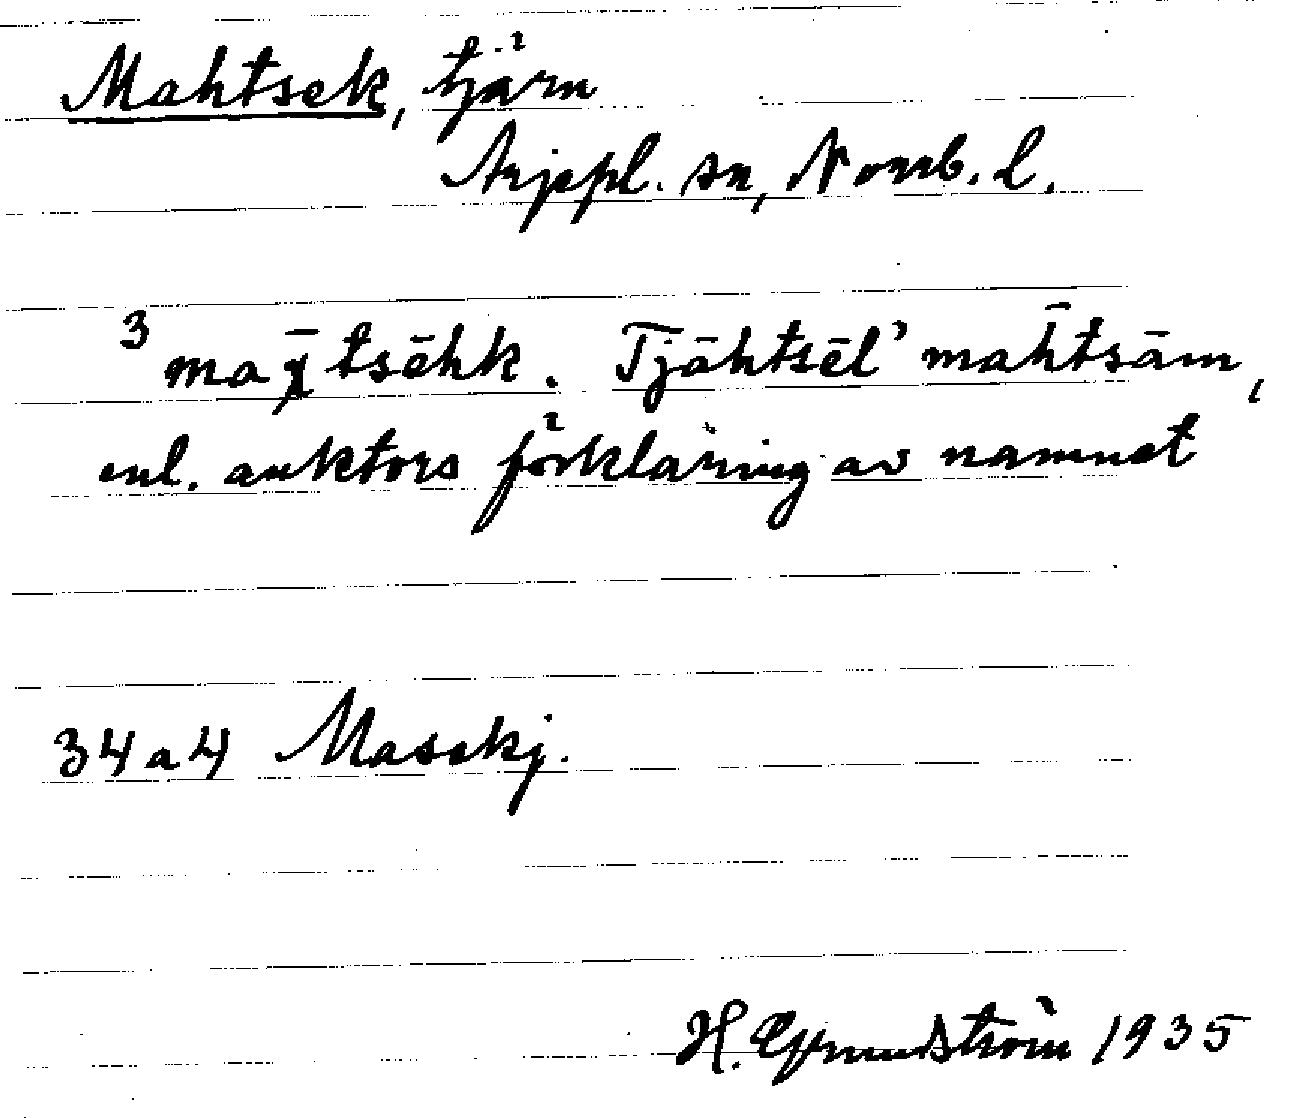 Mahtsek, tjärn
Arjepl. sn, Norrb. l.
³ maχ̄tsēhk. Tjāhtsēl' mah̄tsām,
enl. auktors förklaring av namnet
34a4 Masekj.
H. Grundström 1935